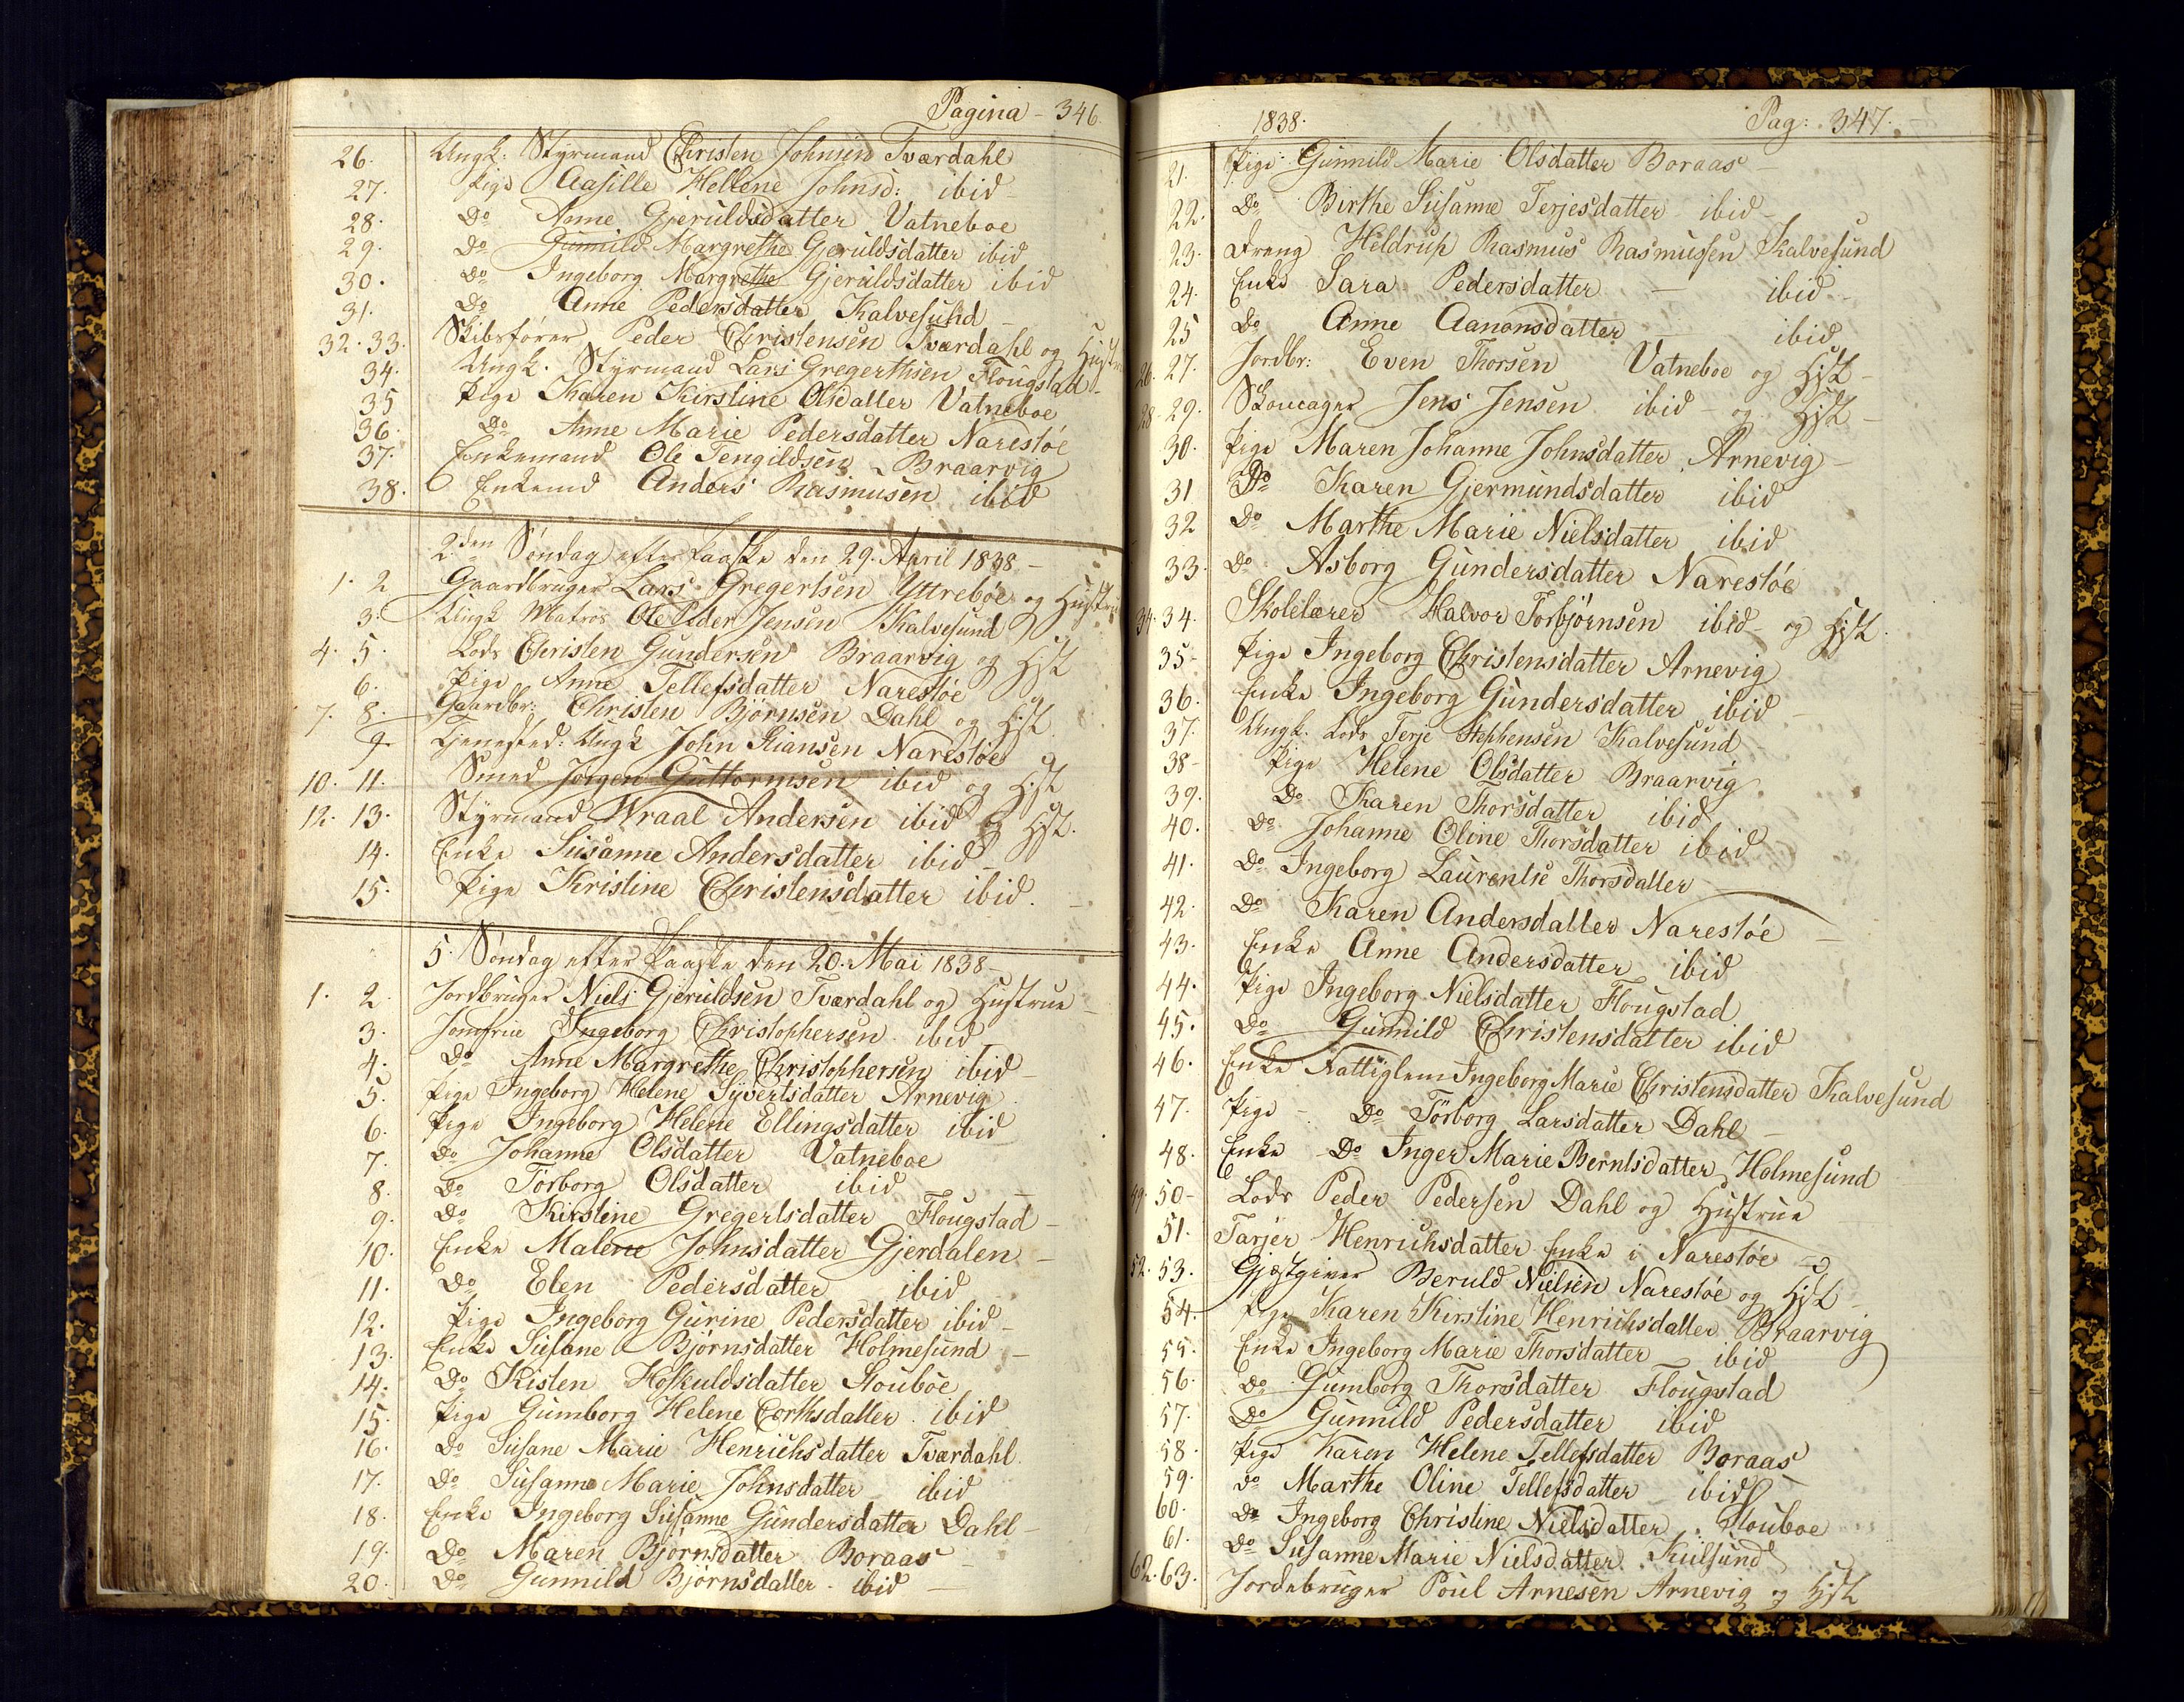 Pagina - 346.
26. Ungk: Styrmand Christen Johnsen Tværdahl
27. Pige Aasille Hellene Johnsd: ibid -
28. Do Anne Gjeruldsdatter Vatneboe
29. Do Gunnild Margrethe Gjeruldsdatter ibid
30. Do Ingeborg Margrethe Gjeruldsdatter ibid
31. Do Anne Pedersdatter Kalvesund -
32. 33. Skibsfører Peder Christensen Tværdahl og Hustru
34. Ungk. Styrmand Lars Gregerthsen Flougstad -
35 Pige Karen Kirstine Olsdatter Vatneboe
36. Do Anne Marie Pedersdatter Narestøe
37. Enkemand Ole Tengildsen - Braarvig
38. Enkemd Anders Rasmusen ibid
2den Søndag efter Paaske den 29. April 1838 -
1. 2 Gaardbruger Lars Gregertsen Yttrebøe og Hustrue
3. Ungk Matros Ole Peder Jensen Kalvesund
4. 5. Lods Christen Gundersen Braarvig og Hst
6. Pige Anne Tellefsdatter Narestøe
7. 8. Gaardbr: Christen Bjørnsen Dahl og Hst
9. Tjenested: Ungk John Kiansen Narestøe
10. 11. Smed Jørgen Guttormsen ibid og Hst
12. 13. Styrmand Wraal Andersen ibid og Hst.
14. Enke Susanne Andersdatter ibid -
15. Pige Kristine Christensdatter ibid. -
5. Søndag efter Paaske den 20. Mai 1838 -
1. 2. Jordbruger Niels Gjeruldsen Tværdahl og Hustrue -
3. Jomfrue Ingeborg Christophersen ibid
4. Do Anne Margrethe Christophersen ibid -
5. Pige Ingeborg Helene Syvertsdatter Arnevig
6. Pige Ingeborg Helene Ellingsdatter ibid
7. Do Johanne Olsdatter Vatneboe
8. Do Torborg Olsdatter ibid
9. Do Kirstine Gregertsdatter Flougstad -
10. Enke Malene Johnsdatter Gjerdalen -
11. Do Elen Pedersdatter ibid
12. Pige Ingeborg Gurine Pedersdatter ibid -
13. Enke Susane Bjørnsdatter Holmesund -
14. Do Kisten Hofkuldsdatter Floubøe
15. Pige Gumborg Helene Corthsdatter ibid
16. Do Susane Marie Henrichsdatter Tværdahl
17. Do Susanne Marie Johnsdatter ibid
18. Enke Ingeborg Susanne Gundersdatter Dahl -
19. Do Maren Bjørnsdatter Boraas
20. Do Gunnild Bjørnsdatter - ibid -
1838. Pag: 347. -
21. Pige Gunnild Marie Olsdatter Boraas -
22. Do Birthe Susanne Terjesdatter ibid -
23. Dreng Heldrup Rasmus Rasmussen Kalvesund
24. Enke Sara Pedersdatter - ibid -
25 Do Anne Aanonsdatter - ibid
26. 27. Jordbr: Even Thorsen Vatneboe og Hst -
28. 29. Skomager Jens Jensen ibid - og Hst -
30. Pige Maren Johanne Johnsdatter Arnevig -
31 Do Karen Gjermundsdatter ibid
32 Do Marthe Marie Nielsdatter ibid
33. Do Asborg Gundersdatter Narestøe
34. 34. Skolelærer Halvor Torbjørnsen ibid og Hst.
35 - Pige Ingeborg Christensdatter Arnevig
36. Enke Ingeborg Gundersdatter ibid -
37. Ungk. Lods Terje Stephensen Kalvesund
38 - Pige Helene Olsdatter Braarvig
39. Do Karen Thorsdatter ibid
40. Do Johanne Oline Thorsdatter ibid
41. Do Ingeborg Laurentse Thorsdatter
42. Do Karen Andersdatter Narestøe -
43. Enke Anne Andersdatter ibid
44. Pige Ingeborg Nielsdatter Flougstad
45. Do Gunnild Christensdatter ibid
46. Enke Fattiglem Ingeborg Marie Christensdatter Kalvesund
47. Pige - Do Torborg Larsdatter Dahl -
48. Enke - Do Inger Marie Berntsdatter Holmesund
49. 50 - Lods Peder Pedersen Dahl og Hustrue
51. Tarjer Henrichsdatter Enke i Narestøe
52. 53. Gjæstgiver Beruld Nielsen Narestøe og Hst -
54. Pige Karen Kirstine Henrichsdatter Braarvig
55. Enke Ingeborg Marie Thorsdatter ibid
56. Do Gumborg Thorsdatter Flougstad
57. Do Gunnild Pedersdatter ibid
58. Pige Karen Helene Tellefsdatter Boraas
59. Do Marthe Oline Tellefsdatter ibid
60. Do Ingeborg Christine Nielsdatter Flouboe
61. Do Susanne Marie Nielsdatter Kielsund
62. 63. Jordebruger Poul Arnesen Arnevig og Hst